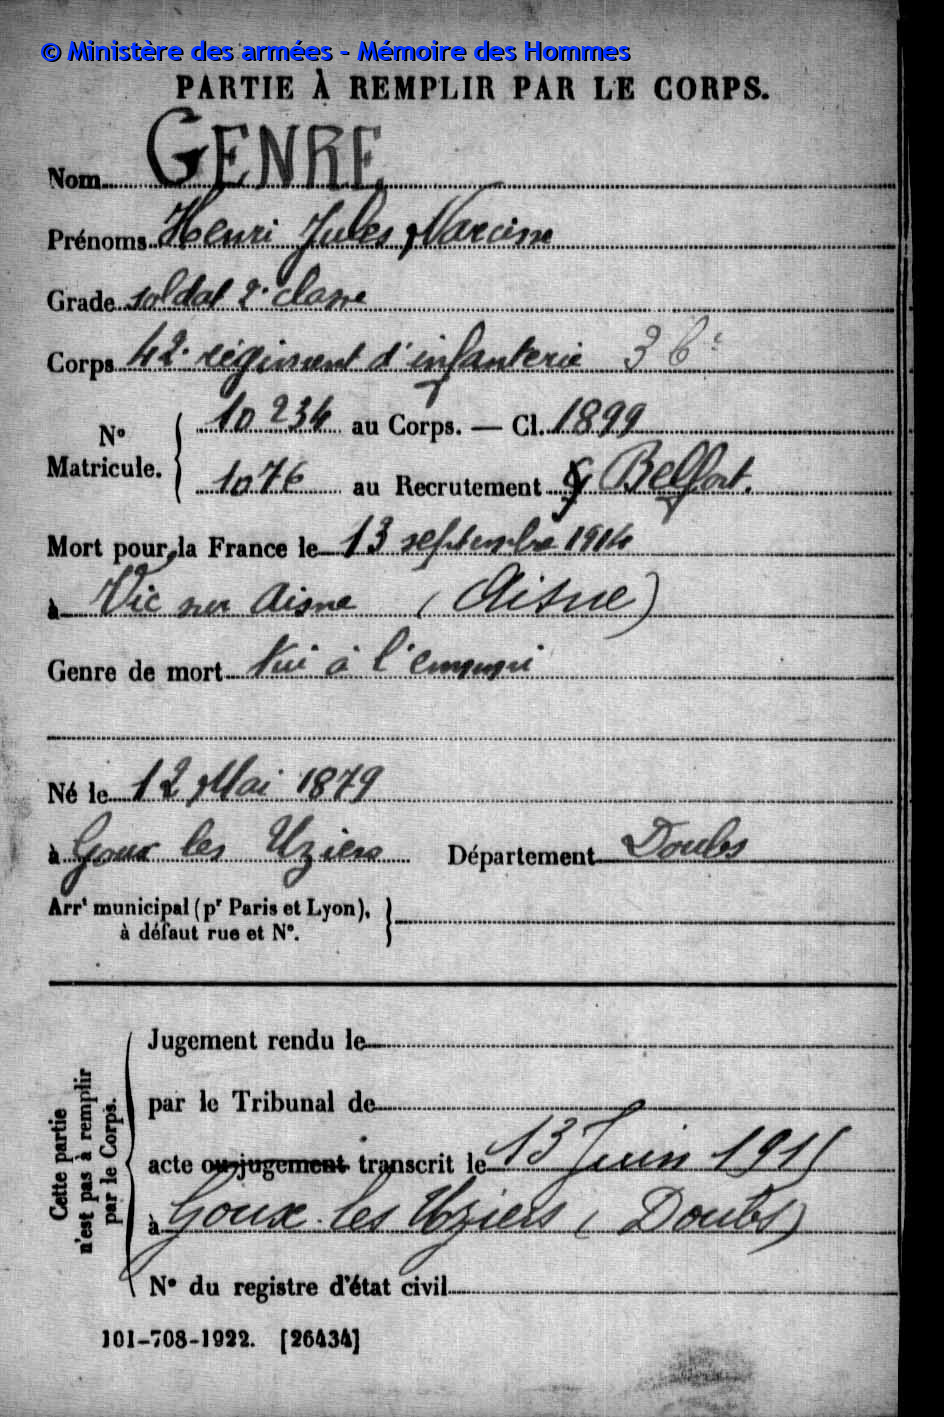 © Ministère des armées - Mémoire des Hommes
PARTIE À REMPLIR PAR LE CORPS.
Nom GENRE
Prénoms Henri Jules Narcisse
Grade soldat 2e classe
Corps 42e régiment d'infanterie
N° Matricule. { 10234 au Corps. — Cl. 1899
1076 au Recrutement Belfort.
Mort pour la France le 13 septembre 1914
à Vic sur Aisne (Aisne)
Genre de mort Tué à l'ennemi
Né le 12 Mai 1879
à Goux les Uziers Département Doubs
Arrt municipal (pr Paris et Lyon), }
à défaut rue et N°.
Cette partie n'est pas à remplir par le Corps.
Jugement rendu le
par le Tribunal de
acte ou jugement transcrit le 13 Juin 1915
à Goux-les Uziers (Doubs)
N° du registre d'état civil
101-708-1922. [26434]